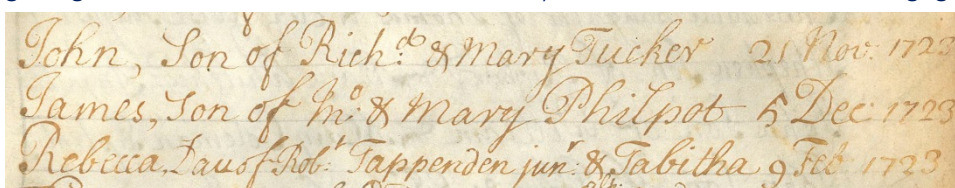 John, Son of Rich.d & Mary Tucker 21 Nov: 1723
James, Son of & Mary Philpot 5 Dec: 1723
Rebecca, Dau of Rob.t Tappenden jun.r & Tabitha 9 Feb 1723